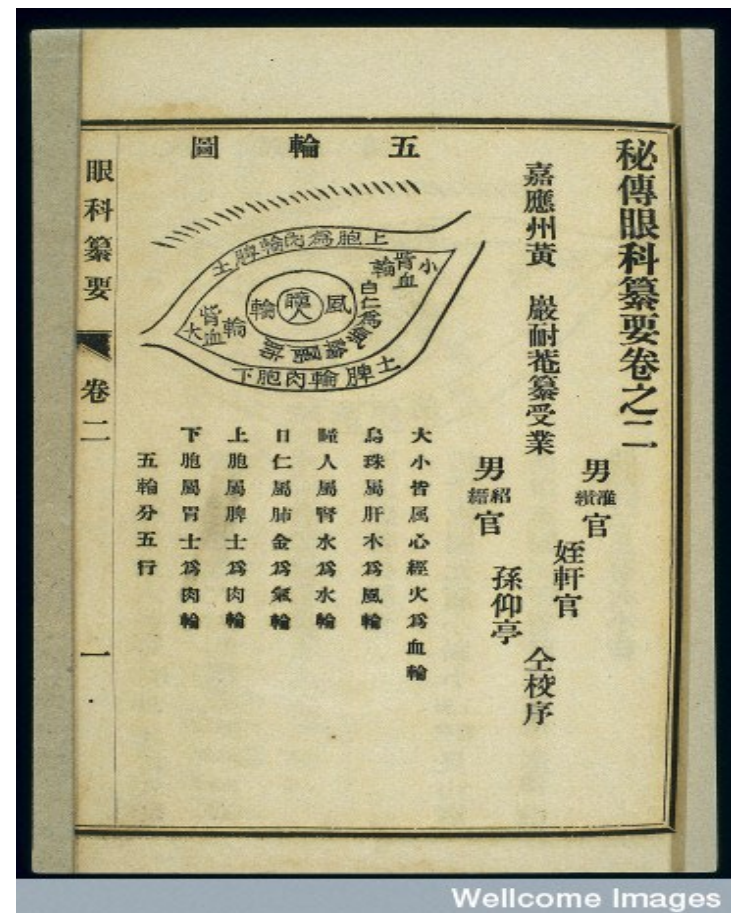 秘傳眼科纂要卷之二
嘉應州黃 巖耐菴纂受業
男
官
姪軒官
男紹縉官
孫仰亭
仝校序
五輪圖
上胞為肉輪脾土
小眥血輪
白仁為氣輪屬肺
風輪
瞳人
大眥血輪
下胞肉輪脾土
大小眥属心經火為血輪
烏珠属肝木為風輪
瞳人属腎水為水輪
白仁属肺金為氣輪
上胞属脾士為肉輪
下胞属胃士為肉輪
五輪分五行
眼科纂要 卷二 一
Wellcome Images